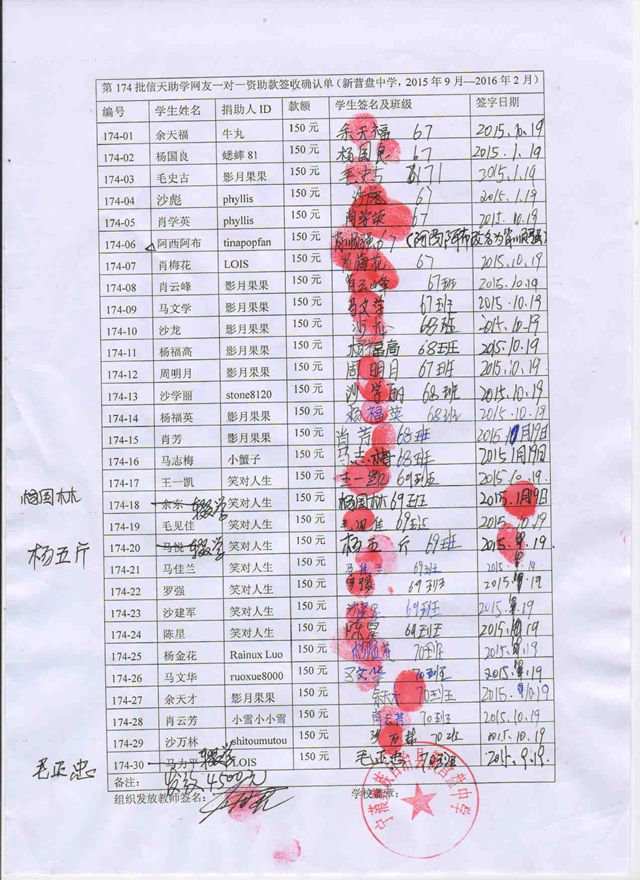 第 174 批信天助学网友一对一资助款签收确认单（新营盘中学，2015 年 9 月—2016 年 2 月）
编号 学生姓名 捐助人 ID 款额 学生签名及班级 签字日期
174-01 余天福 牛丸 150 元 余天福 67 2015.10.19
174-02 杨国良 蟋蟀 81 150 元 杨国良 67 2015.1.19
174-03 毛史古 影月果果 150 元 毛史古 71 2015.1.19
174-04 沙彪 phyllis 150 元 沙彪 67 2015.1.19
174-05 肖学英 phyllis 150 元 肖学英 67 2015.10.19
174-06 阿西阿布 tinapopfan 150 元 67
174-07 肖梅花 LOIS 150 元 肖梅花 67 2015.10.19
174-08 肖云峰 影月果果 150 元 肖云峰 67班 2015.10.19
174-09 马文学 影月果果 150 元 马文学 67班 2015.10.19
174-10 沙龙 影月果果 150 元 沙龙 68班 2015.10.19
174-11 杨福高 影月果果 150 元 杨福高 68班 2015.10.19
174-12 周明月 影月果果 150 元 周明月 67班 2015.10.19
174-13 沙学丽 stone8120 150 元 沙学丽 68班 2015.10.19
174-14 杨福英 影月果果 150 元 杨福英 68班 2015.10.19
174-15 肖芳 影月果果 150 元 肖芳 68班 2015.10月19日
174-16 马志梅 小蟹子 150 元 马志梅 68班 2015.1月19日
174-17 王一凯 笑对人生 150 元 王一凯 69班 2015.10.19
杨国林 174-18 余东 辍学 笑对人生 150 元 杨国林 69班 2015.1月19日
174-19 毛见佳 笑对人生 150 元 69班 2015.10.19
杨五斤 174-20 马悦 辍学 笑对人生 150 元 杨五斤 69班 2015.9.19.
174-21 马佳兰 笑对人生 150 元 马佳兰 69班 2015.9.19
174-22 罗强 笑对人生 150 元 罗强 69班 2015.9.19
174-23 沙建军 笑对人生 150 元 沙建军 69班 2015.9.19
174-24 陈星 笑对人生 150 元 陈星 69班 2015.10.19
174-25 杨金花 Rainux Luo 150 元 杨金花 70班 2015.9.19
174-26 马文华 ruoxue8000 150 元 马文华 70班 2015.9.19
174-27 余天才 影月果果 150 元 余天才 70班 2015.10.19
174-28 肖云芳 小雪小小雪 150 元 肖云芳 70班 2015.10.19
174-29 沙万林 shitoumutou 150 元 沙万林 70班 2015.10.19
毛正忠 174-30 马力平 辍学 LOIS 150 元 毛正忠 70班 2015.9.19.
备注： 发放4500元
组织发放教师签名： 学校盖章：